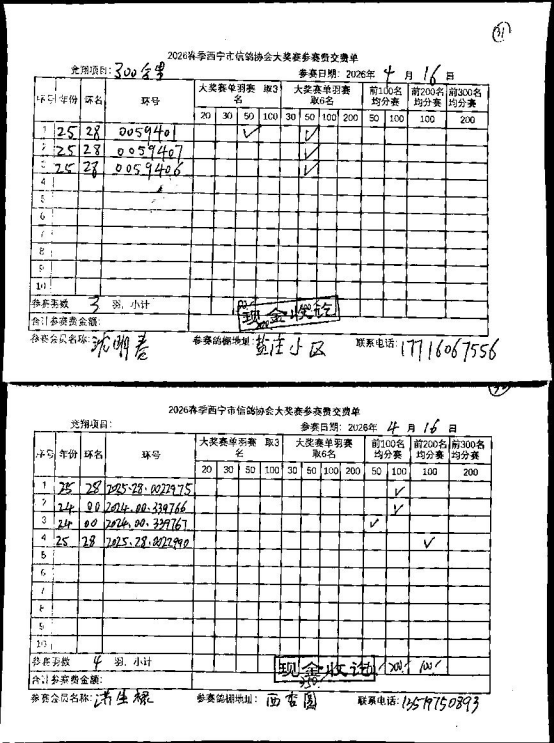 31
2026春季西宁市信鸽协会大奖赛参赛费交费单
竞翔项目: 300公里 参赛日期: 2026年 4 月 16 日
序号 年份 环名 环号 大奖赛单羽赛 取3名 大奖赛单羽赛 取6名 前100名均分赛 前200名均分赛 前300名均分赛
20 30 50 100 30 50 100 200 50 100 100 200
1 25 28 0059401 ✓ ✓
2 25 28 0059407 ✓
3 25 28 0059406 ✓
4
5
6
7
8
9
10
参赛羽数 3 羽, 小计
现金收讫
合计参赛费金额:
参赛会员名称: 沈明春 参赛鸽棚地址: 盐庄小区 联系电话: 17716067556
2026春季西宁市信鸽协会大奖赛参赛费交费单
竞翔项目: 参赛日期: 2026年 4 月 16 日
序号 年份 环名 环号 大奖赛单羽赛 取3名 大奖赛单羽赛 取6名 前100名均分赛 前200名均分赛 前300名均分赛
20 30 50 100 30 50 100 200 50 100 100 200
1 25 28 2025.28.0022975 ✓
2 24 00 2024.00.339766 ✓
3 24 00 2024.00.339767 ✓
4 25 28 2025.28.0022990 ✓
5
6
7
8
9
10
参赛羽数 4 羽, 小计 现金收讫 200 100
350
合计参赛费金额:
参赛会员名称: 生禄 参赛鸽棚地址: 西杏园 联系电话: 13519750893